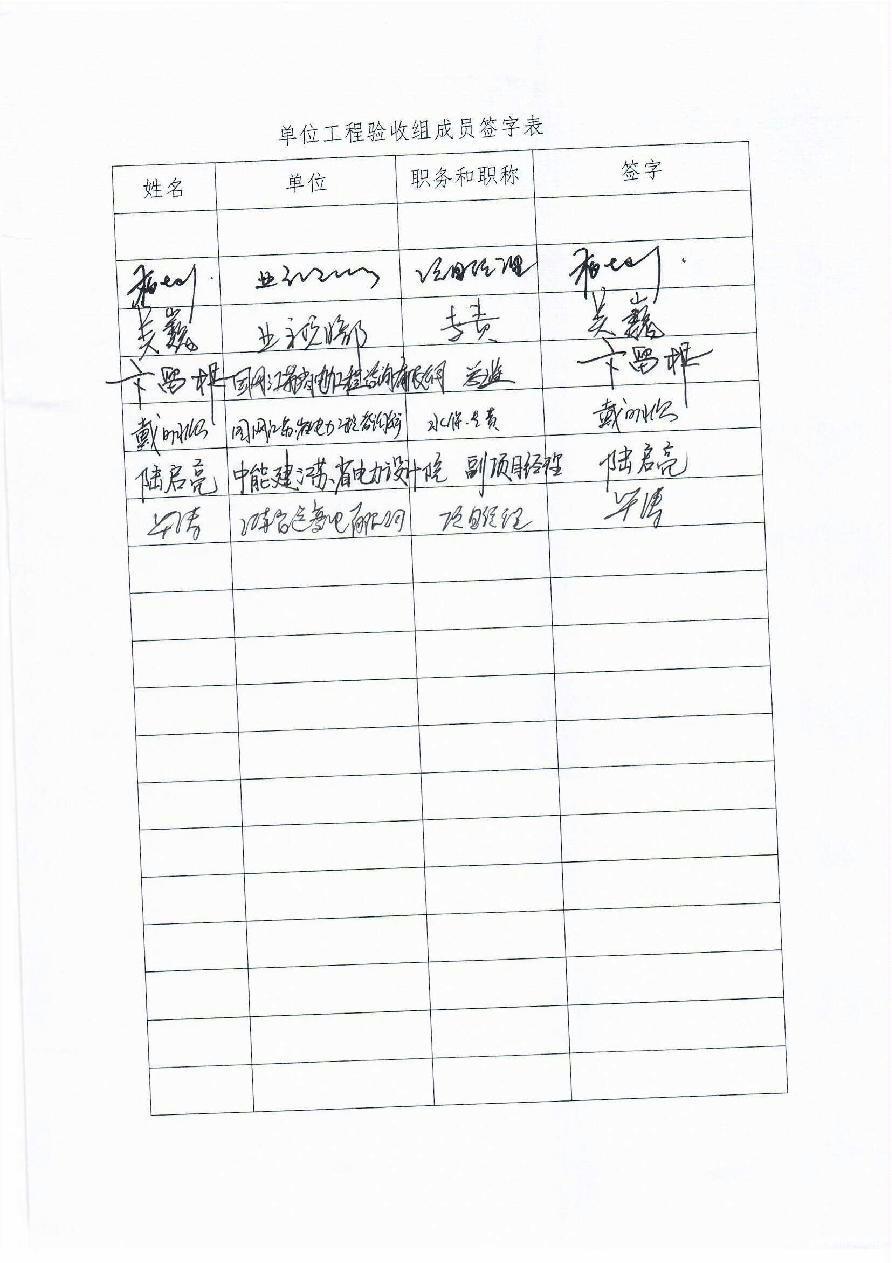 单位工程验收组成员签字表
姓名 单位 职务和职称 签字
项目经理
吴巍 业主项目部 专责 吴巍
卞留根 国网江苏省电力工程咨询有限公司 总监 卞留根
戴 国网江苏省电力工程咨询 水保专责 戴
陆启亮 中能建江苏省电力设计院 副项目经理 陆启亮
毕涛 项目经理 毕涛